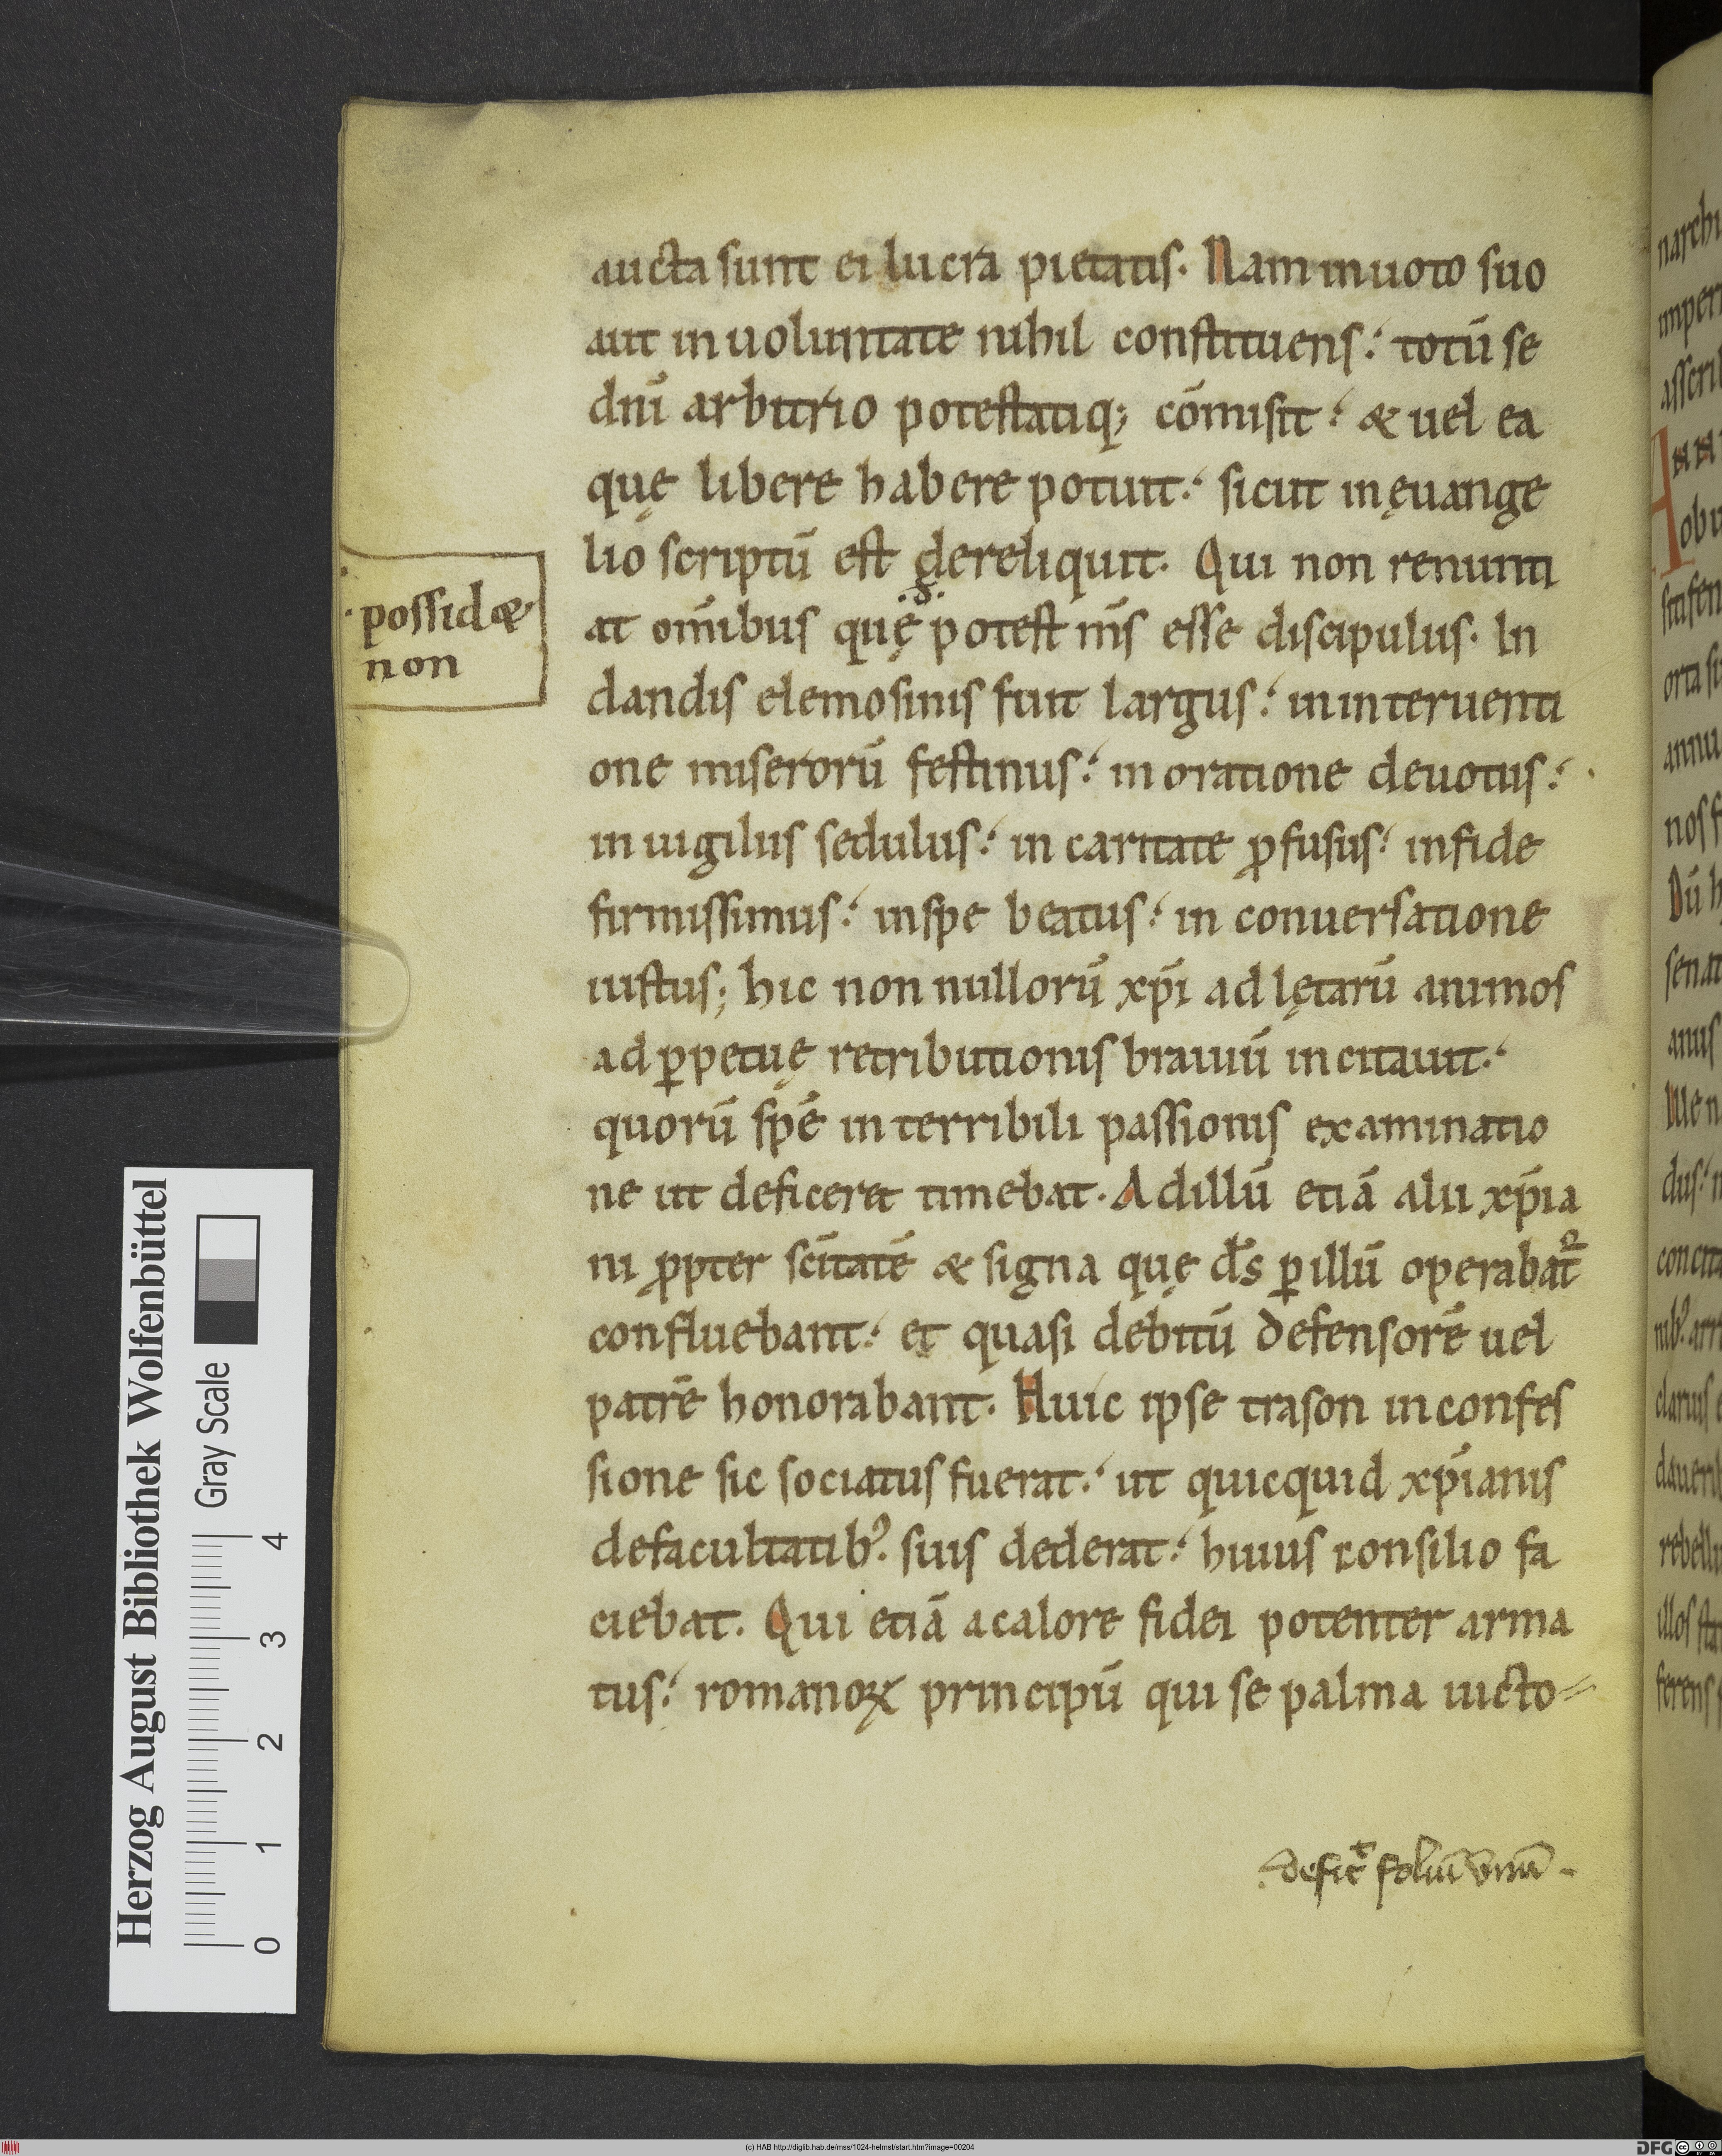 aucta sunt ei lucra pietatis. Nam in uoto suo
aut in uoluntate nihil constituens: totū se
dnī arbitrio potestatiq; cōmisit: & uel ea
quę libere habere potuit: sicut in ęuange
lio scriptū est dereliquit. Qui non renunti
at om̄ibus quę potest m̄s esse discipulus. In
possid&
non
dandis elemosinis fuit largus: in interuenti
one miserorū festinus: in oratione deuotus:
in uigiliis sedulus: in caritate ꝓfusus: in fide
firmissimus: in spe beatus: in conuersatione
iustus; hic non nullorū xp̄i adlętarū animos
ad ꝑpetuę retributionis brauiū incitauit:
quorū spē in terribili passionis examinatio
ne ut deficeret timebat. Ad illū etiā alii xp̄ia
ni ꝓpter scītatē & signa quę ds̄ ꝑ illū operabat᷑
confluebant: et quasi debitū defensorē uel
patrē honorabant. Huic ipse trason in confes
sione sic sociatus fuerat: ut quicquid xp̄ianis
de facultatib᾽. suis dederat: huius consilio fa
ciebat. Qui etiā a calore fidei potenter arma
tus: romanoꝝ principū qui se palma uicto=
deficit foliū vnū
Herzog August Bibliothek Wolfenbüttel
Gray Scale
0 1 2 3 4
(c) HAB http://diglib.hab.de/mss/1024-helmst/start.htm?image=00204
DFG